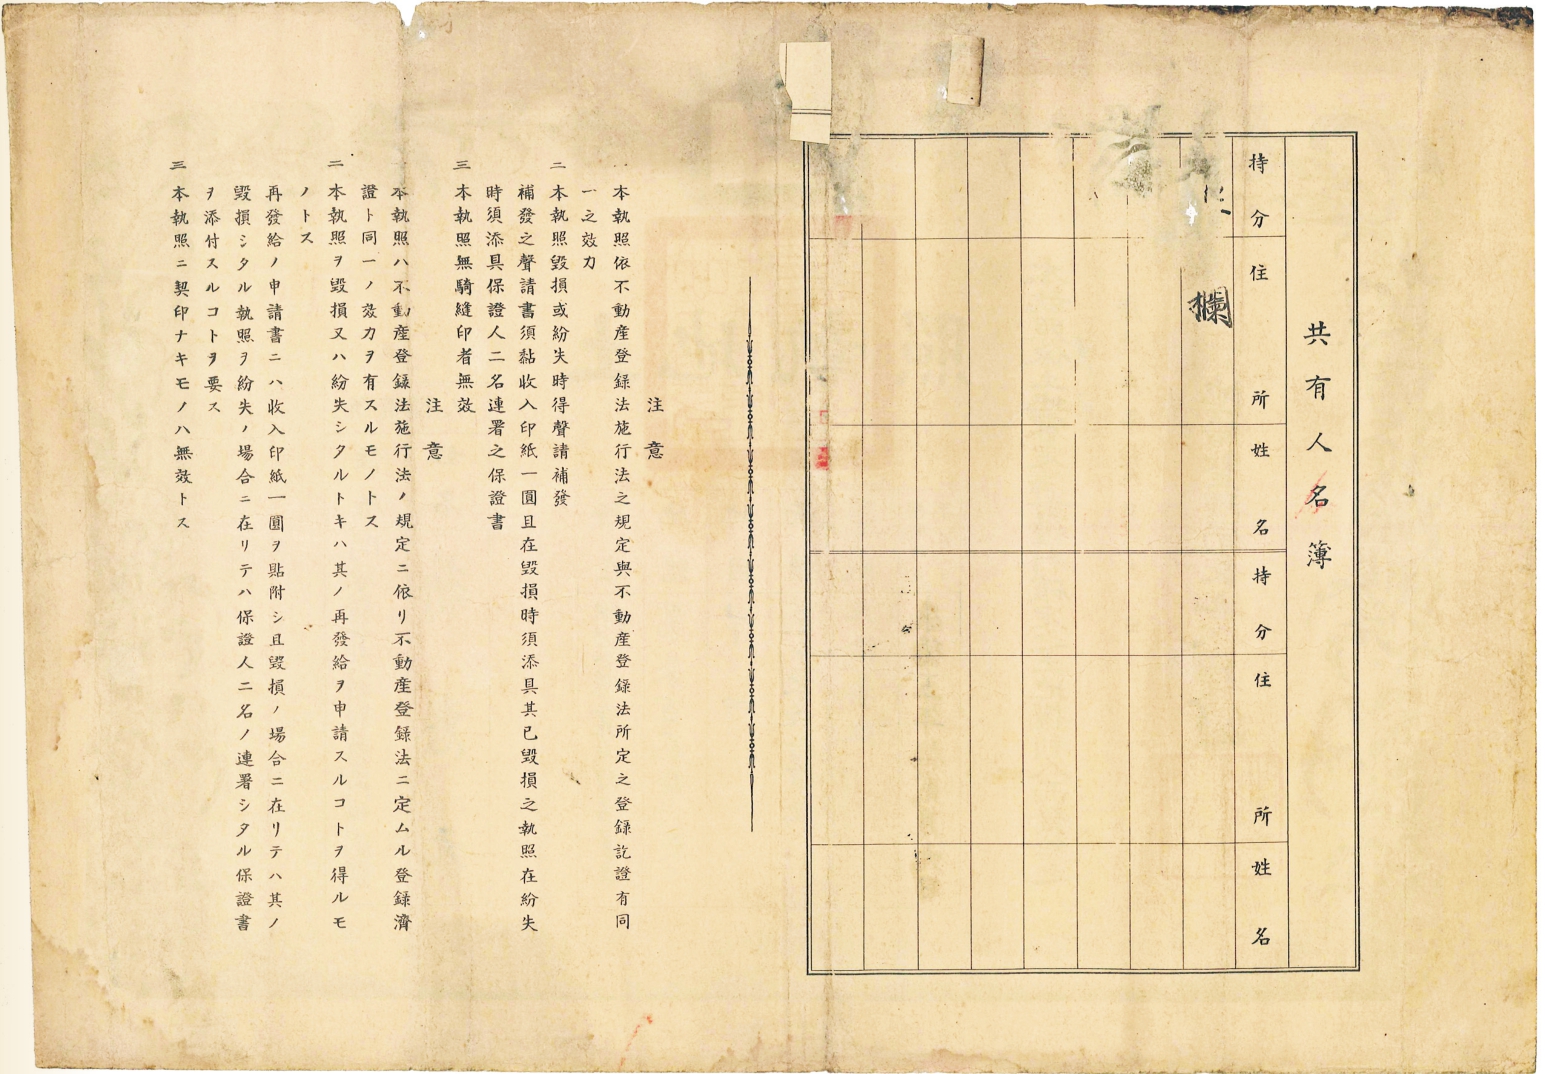 共有人名簿
持分 住所 姓名 持分 住所 姓名
欄
注意
一 本執照依不動產登錄法施行法之規定與不動產登錄法所定之登錄訖證有同
一之效力
二 本執照毀損或紛失時得聲請補發
補發之聲請書須黏收入印紙一圓且在毀損時須添具其已毀損之執照在紛失
時須添具保證人二名連署之保證書
三 本執照無騎縫印者無效
注意
一 本執照ハ不動產登錄法施行法ノ規定ニ依リ不動產登錄法ニ定ムル登錄濟
證ト同一ノ效力ヲ有スルモノトス
二 本執照ヲ毀損又ハ紛失シタルトキハ其ノ再發給ヲ申請スルコトヲ得ルモ
ノトス
再發給ノ申請書ニハ收入印紙一圓ヲ貼附シ且毀損ノ場合ニ在リテハ其ノ
毀損シタル執照ヲ紛失ノ場合ニ在リテハ保證人二名ノ連署シタル保證書
ヲ添付スルコトヲ要ス
三 本執照ニ契印ナキモノハ無效トス